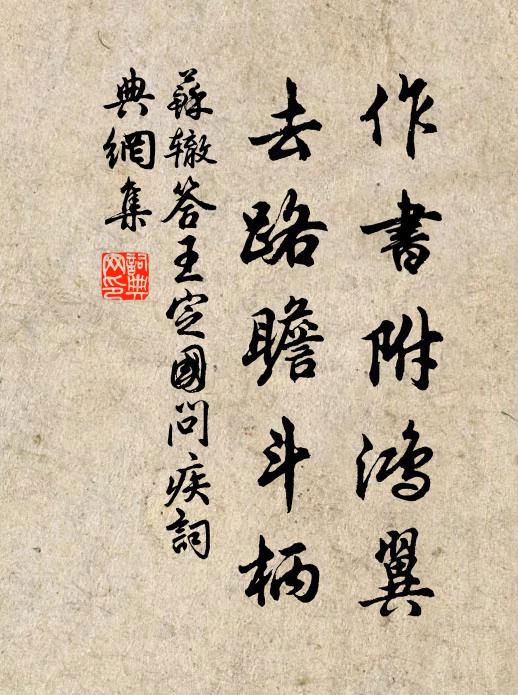 作書附鴻翼
去路瞻斗柄
蘇轍答王定國問疾詞
典網集
詞典網印